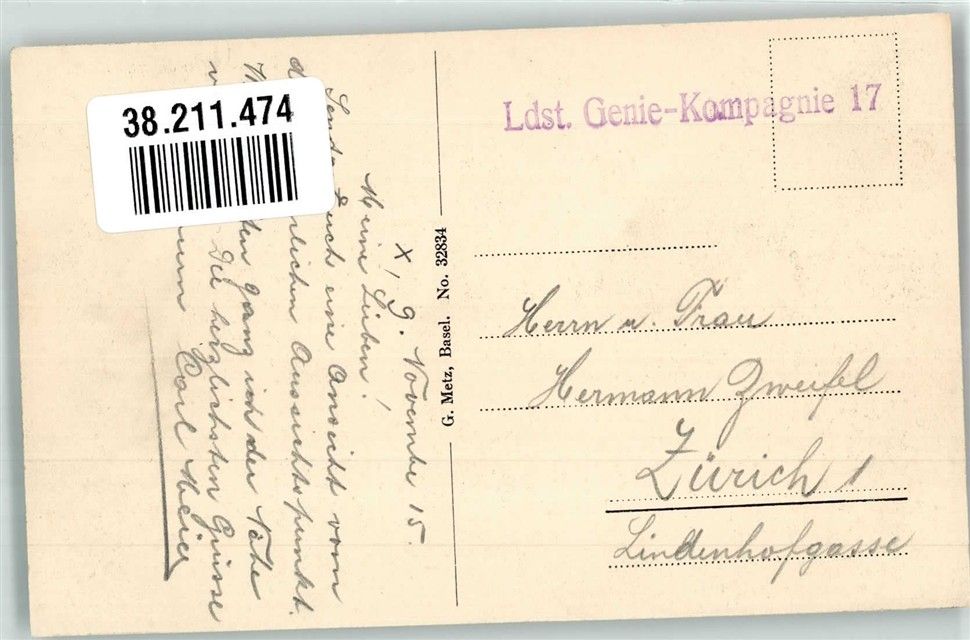 38.211.474
Ldst. Genie-Kompagnie 17
X, 9. November 15.
Meine Lieben!
Sende Euch eine Ansicht vom
Aussichtspunkt.
ganz in der Nähe
Die herzlichsten Grüsse
Carl Meier
G. Metz, Basel. No. 32834
Herrn u. Frau
Hermann Zweifel
Zürich 1
Lindenhofgasse